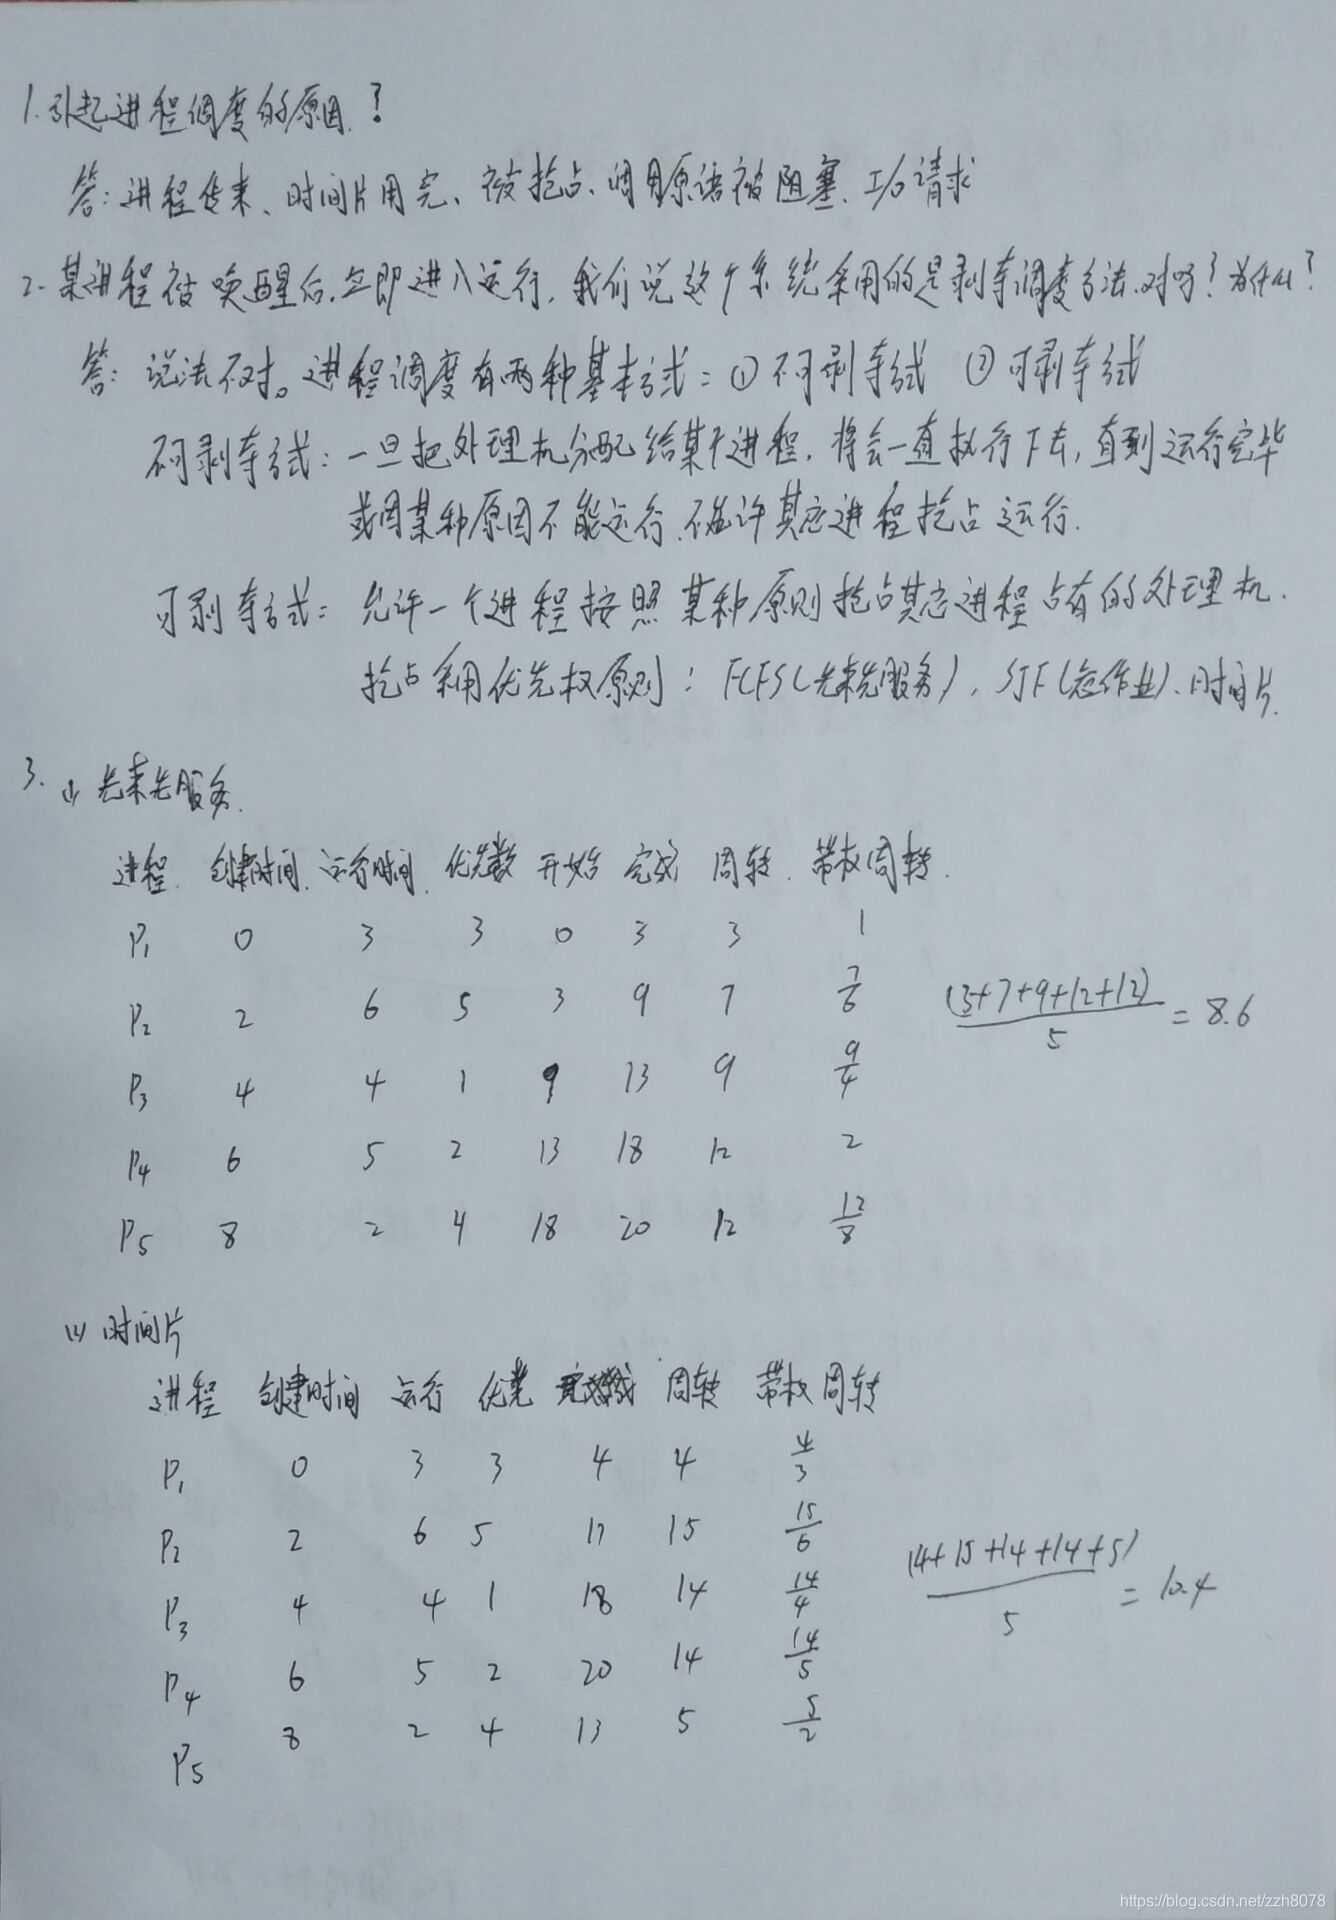 1.引起进程调度的原因?
答:进程结束、时间片用完、被抢占、调用原语被阻塞、I/O请求
2.某进程被唤醒后,立即进入运行,我们说这个系统采用的是剥夺调度方法,对吗?为什么?
答:说法不对。进程调度有两种基本方式:①不可剥夺方式 ②可剥夺方式
不可剥夺方式:一旦把处理机分配给某个进程,将会一直执行下去,直到运行完毕
或因某种原因不能运行,不允许其它进程抢占运行.
可剥夺方式:允许一个进程按照某种原则抢占其它进程占有的处理机.
抢占采用优先权原则:FCFS(先来先服务)、SJF(短作业)、时间片.
3. (1) 先来先服务.
进程 创建时间 运行时间 优先数 开始 完成 周转 带权周转
P1 0 3 3 0 3 3 1
P2 2 6 5 3 9 7 7/6
P3 4 4 1 9 13 9 9/4
P4 6 5 2 13 18 12 2
P5 8 2 4 18 20 12 12/8
(3+7+9+12+12)/5 = 8.6
(2) 时间片
进程 创建时间 运行 优先 完成 周转 带权周转
P1 0 3 3 4 4 4/3
P2 2 6 5 17 15 15/6
P3 4 4 1 18 14 14/4
P4 6 5 2 20 14 14/5
P5 8 2 4 13 5 5/2
(4+15+14+14+5)/5 = 10.4
https://blog.csdn.net/zzh8078